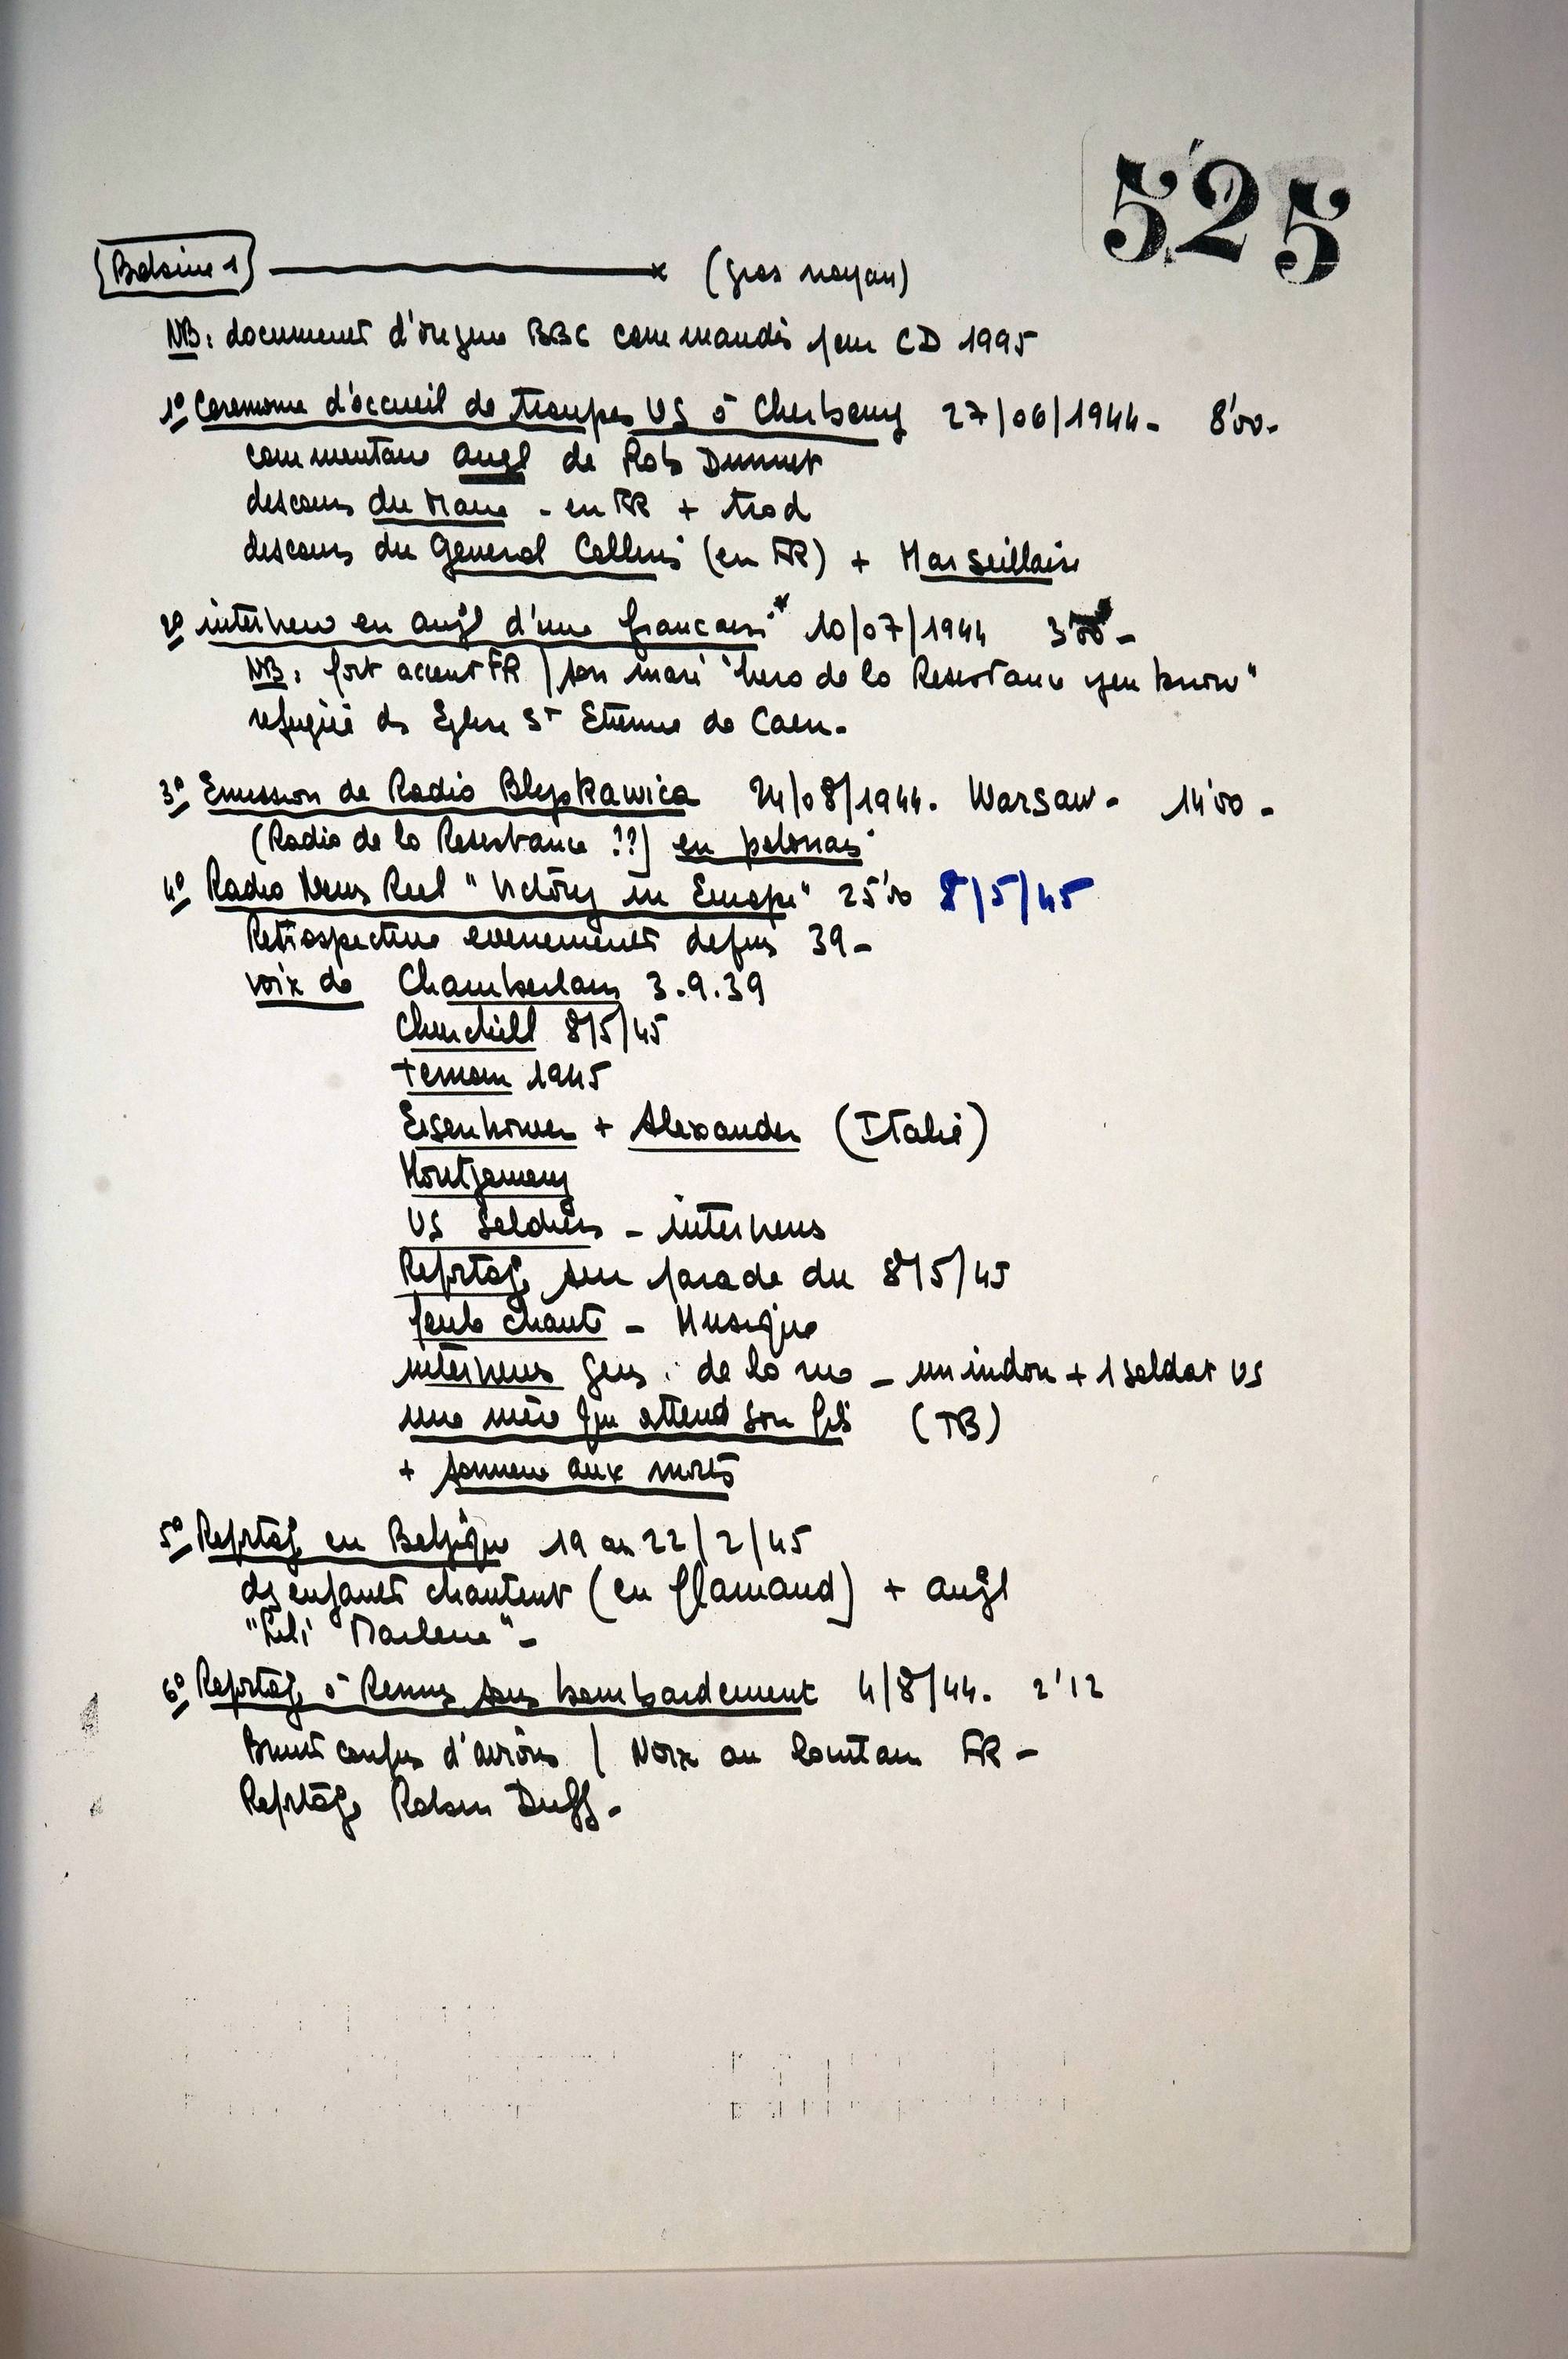 525
Bobine 1 (gros noyau)
NB: document d'origine BBC commandés pour CD 1995
1° Ceremonie d'accueil de troupes US à Cherbourg 27/06/1944 - 8'00 -
commentaire angl de Rob Dunnet
discours du Maire - en FR + trad
discours du General Collins (en FR) + Marseillaise
2° interview en angl d'une francaise 10/07/1944 3'00 -
NB: fort accent FR / son mari "hero de la Resistance you know"
refugiée ds Eglise St Etienne de Caen -
3° Emission de Radio Blyskawica 24/08/1944. Warsaw - 14'00 -
(Radio de la Resistance ??) en polonais
4° Radio News Reel "Victory in Europe" 25'10 8/5/45
Retrospective evenements depuis 39 -
voix de Chamberlain 3.9.39
Churchill 8/5/45
Truman 1945
Eisenhower + Alexander (Italie)
Montgomery
US Soldiers - interviews
Reportage sur parade du 8/5/45
foule chante - Musique
interviews gens de la rue - un indou + 1 soldat US
une mère qui attend son fils (TB)
+ sonnerie aux morts
5° Reportage en Belgique 19 au 22/2/45
ds enfants chantent (en flamand) + angl
"Lili Marlene" -
6° Reportage à Rennes sous bombardement 4/8/44. 2'12
Bruit confus d'avions / Voix au lointain FR -
Reportage Robin Duff -